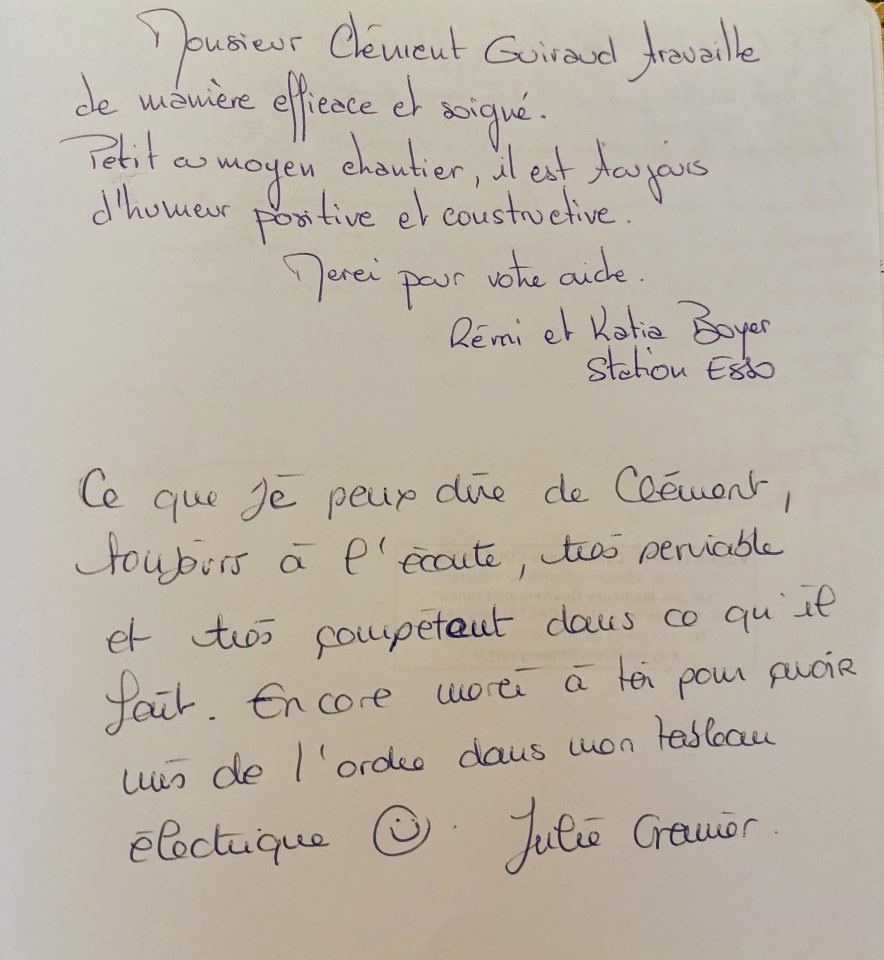 Monsieur Clément Guiraud travaille
de manière efficace et soigné.
Petit ou moyen chantier, il est toujours
d'humeur positive et constructive.
Merci pour votre aide.
Rémi et Katia Boyer
Station Esso
Ce que je peux dire de Clément,
toujours à l'écoute, très serviable
et très compétent dans ce qu'il
fait. Encore merci à toi pour avoir
mis de l'ordre dans mon tableau
électrique ☺. Julie Grenier.